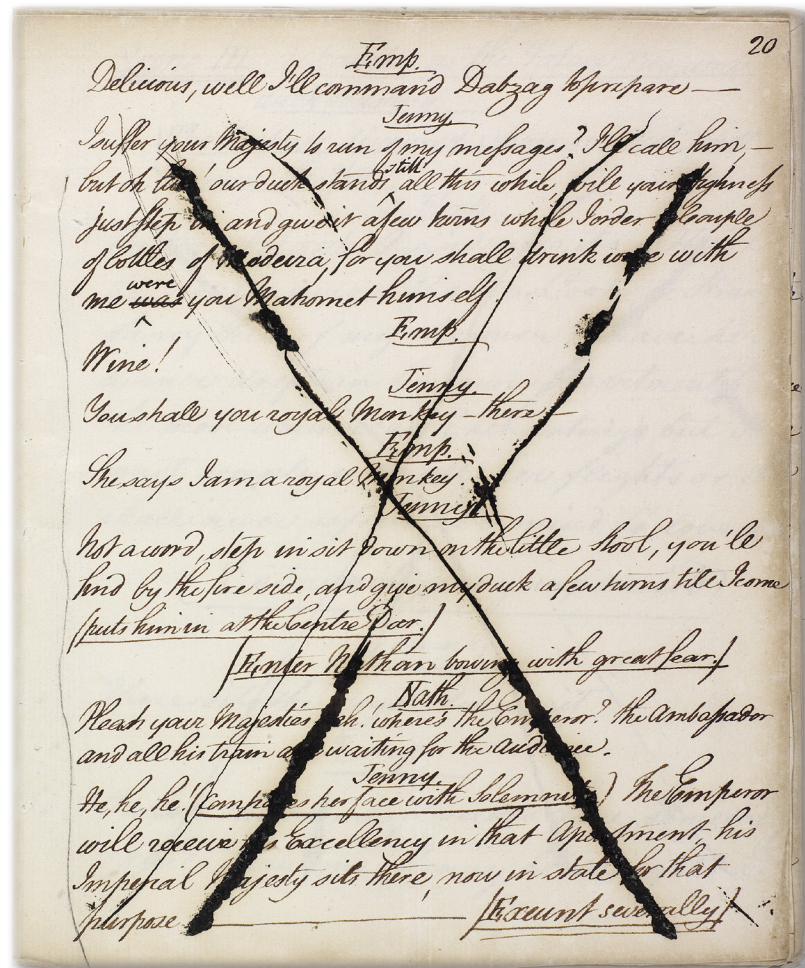 20
Emp.
Delicious, well I'll command Dabzag to prepare —
Jenny.
I suffer your Majesty to run of my messages? I'll call him, —
but oh our duck stands still all this while, will your Highness
just step in, and give it a few turns while I order a Couple
of bottles of Madeira, for you shall drink wine with
me was were you Mahomet himself.
Emp.
Wine!
Jenny.
You shall you royal Monkey — there —
Emp.
She says I am a royal Monkey.
Jenny.
Not a word, step in sit down on the little stool, you'll
find by the fire side, and give my duck a few turns till I come
(puts him in at the Centre Door.)
[Enter Nathan bowing with great fear.]
Nath.
Pleash your Majesties where's the Emperor? the Ambassador
and all his train are waiting for the Audience.
Jenny.
He, he, he! (Composes her face with Solemnity) The Emperor
will receive his Excellency in that Apartment, his
Imperial Majesty sits there, now in state for that
purpose — [Exeunt severally]